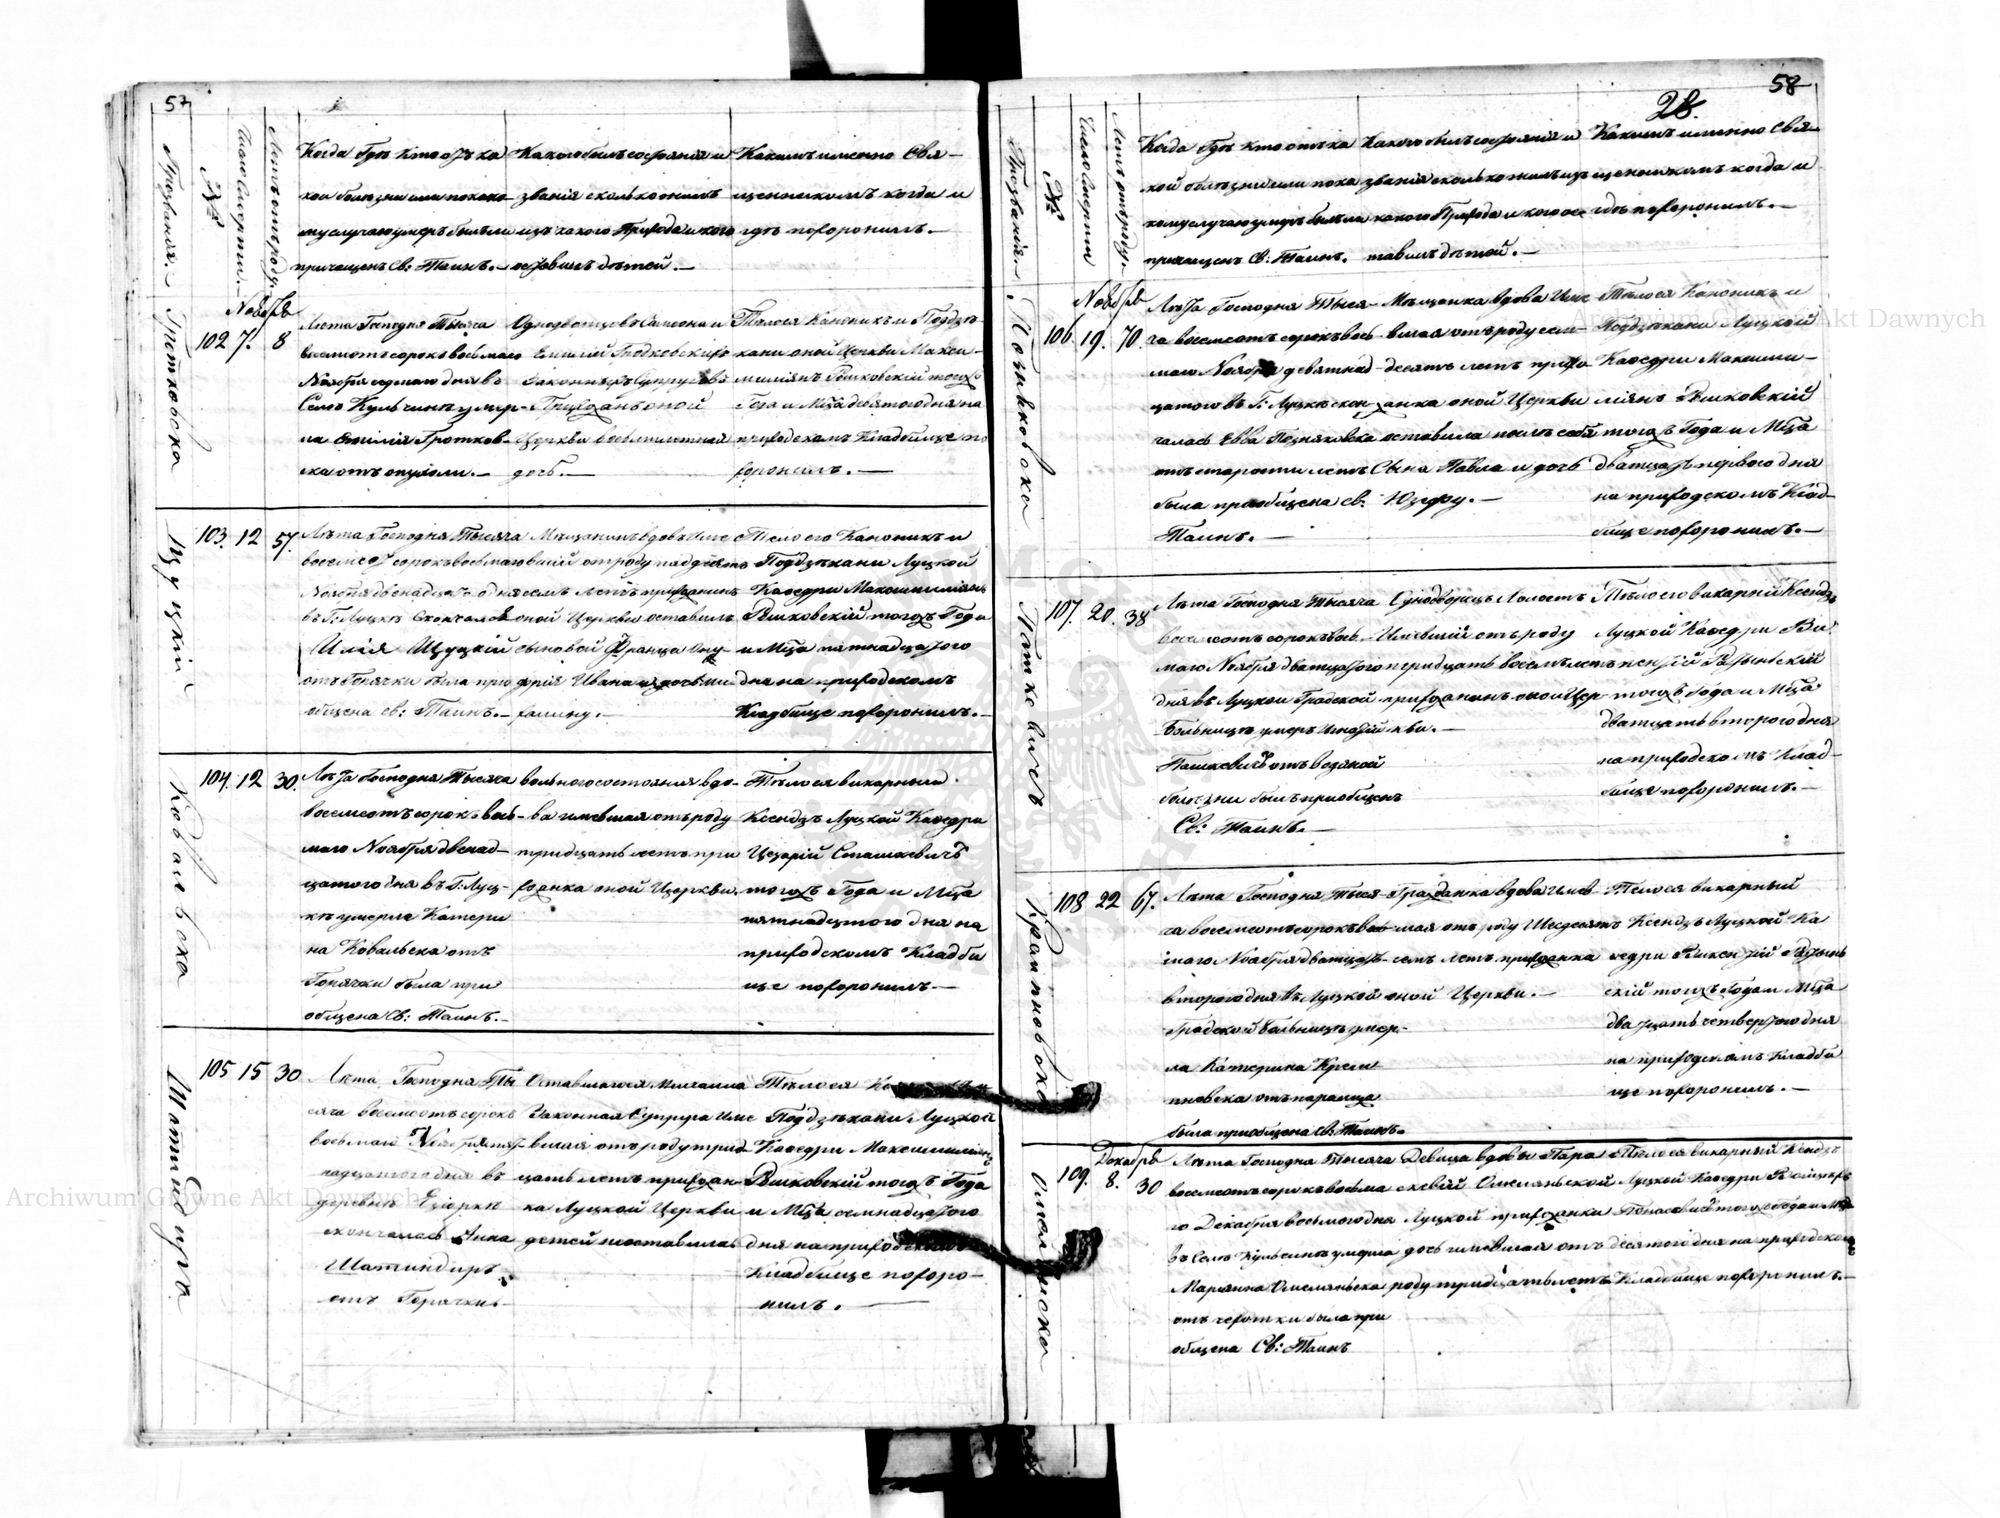 57
Прозванія.
№
Число Смерти.
Летъ отъ роду.
Когда Гдѣ Кто отъ ка
кой болѣзни или по како
му случаю умеръ былъ ли
причащенъ Св: Таинъ.
Какого былъ состоянія и
званія сколько жилъ
изъ какого Прихода и кого
оставилъ дѣтей.
Какимъ именно Свя-
щенникомъ когда и
гдѣ похоронилъ.
Ноября
102 7. 8
Лѣта Господня Тысяча
восемсотъ сорокъ восмаго
Ноября седмаго дня въ
Селѣ Кульчинѣ умер-
ла Емилія Гротков-
ска отъ опухоли.
Однодворцовъ Самсона и
Емилій Гродковскихъ
Законныхъ Супруговъ
Прихожанъ оной
Церкви восьмилѣтная
дочь.
Тѣло ея Каноникъ и Подзѣ-
кани оной Церкви Макси-
миліянъ Рыжковскій тогожъ
Года и Мѣца девятого дня на
приходскомъ Кладбище по
хоронилъ.
Щуцкій
103. 12 57.
Лѣта Господня Тысяча
восемсотъ сорокъ восмаго
Ноября двенадцатого дня
въ Г. Луцкѣ Скончался
Илія Щуцкій
отъ Горячки была прио
общена св: Таинъ.
Мѣщанинъ вдовъ Име
вшій отъ роду пядьдесятъ
семъ летъ прихожанинъ
оной Церкви оставилъ
сыновей Франца Ону
фрія Ивана и дочь
галину.
Тело его Каноникъ и
Подзѣкани Луцкой
Кафедри Максимиліянъ
Рыжковскій тогожъ Года
и Мѣца пятнадцатого
дня на приходскомъ
Кладбище похоронилъ.
Ковальска
104. 12 30.
Лѣта Господня Тысяча
восемсотъ сорокъ вось-
маго Ноября двенад-
цатого дня въ Г: Луц-
кѣ умерла Катери
на Ковальска отъ
Горячки была при
общена Св: Таинъ.
вольного состоянія вдо-
ва имевшая отъ роду
тридцать летъ при
хожанка оной Церкви.
Тѣло ея викарный
Ксендзъ Луцкой Кафедри
Цезарій Сташкевичъ
тогожъ Года и Мѣца
пятнадцатого дня на
приходскомъ Кладби
ще похоронилъ.
105 15 30
Лѣта Господня Ты
сяча восемсотъ сорокъ
восьмаго Ноября пят-
надцатого дня въ
деревнѣ
скончалась Анна
Шатиндиръ
отъ Горячки
Оставшагося Михаила
Законная Супруга Име
вшая отъ роду трид-
цать летъ прихожан-
ка Луцкой Церкви
детей неоставила
Тѣло ея
Подзѣкани Луцкой
Кафедри Максимиліянъ
Рыжковскій тогожъ Года
и Мѣца семнадцатого
дня на приходскомъ
Кладбище похоро-
нилъ.
58
28.
Прозванія.
№
Число Смерти
Летъ отъ роду.
Когда Гдѣ Кто отъ ка
кой болѣзни или по ка
кому случаю умеръ былъ ли
причащенъ Св: Таинъ.
Какого былъ состоянія и
званія сколько жилъ изъ
какого Прихода и кого ос-
тавилъ дѣтей.
Какимъ именно Свя-
щенникомъ когда и
гдѣ похоронилъ.
Ноября
106 19. 70.
Лѣта Господня Тыся-
ча восемсотъ сорокъ вось-
маго Ноября девятнад-
цатого въ Г: Луцкѣ скон-
чалась Евва Позняковска
отъ старости летъ
была приобщена св:
Таинъ.
Мѣщанка вдова Име
вшая отъ роду семь-
десятъ летъ прихо-
жанка оной Церкви
оставила послѣ себя
Сына Павла и дочь
Юзефу.
Тѣло ея Каноникъ и
Подзѣкани Луцкой
Кафедри Максими-
ліянъ Рыжковскій
тогожъ Года и Мѣца
дватцать первого дня
на приходскомъ Клад-
бище похоронилъ.
107. 20. 38
Лѣта Господня Тысяча
восемсотъ сорокъ вось-
маго Ноября дватцатого
дня въ Луцкой Градской
Больницѣ умеръ Игнатій
Пашкевичъ отъ водяной
болѣзни былъ приобщенъ
Св: Таинъ.
Однодворецъ Холостъ
Имѣвшій отъ роду
тридцать восемъ летъ
прихожанинъ оной Цер
кви.
Тѣло его викарній Ксендзъ
Луцкой Кафедри Ви
кентій Радзынскій
тогожъ Года и Мѣца
дватцать второго дня
на приходскомъ Клад-
бище похоронилъ.
108 22 67.
Лѣта Господня Тыся-
ча восемсотъ сорокъ вось
маго Ноября дватцать
второго дня въ Луцкой
Градской Больницѣ умер-
ла Катерина Крем
пновска отъ паралича
была приобщена Св: Таинъ.
Гражданка вдова Имев
шая отъ роду Шесдесятъ
семъ летъ прихожанка
оной Церкви.
Тело ея викарный
Ксендзъ Луцкой Ка
ѳедри Викентій Радзын
скій тогожъ Года и Мѣца
дватцать четвертого дня
на приходскомъ кладби
ще похоронилъ.
Декабря
109. 8. 30
Лѣта Господня Тысяча
восемсотъ сорокъ восьма
го Декабря восьмого дня
въ Селѣ Кульчинѣ умерла
Маріянна Омелянска
отъ чехотки была при
общена Св: Таинъ
Девица вдовы Пара
скевій Омелянской
Луцкой прихожанки
дочь имевшая отъ
роду тридцать летъ
Тѣло ея викарный Ксендзъ
Луцкой Кафедри
тогожъ Года и Мѣца
десятого дня на приходскомъ
Кладбище похоронилъ.
Archiwum Główne Akt Dawnych
Archiwum Główne Akt Dawnych